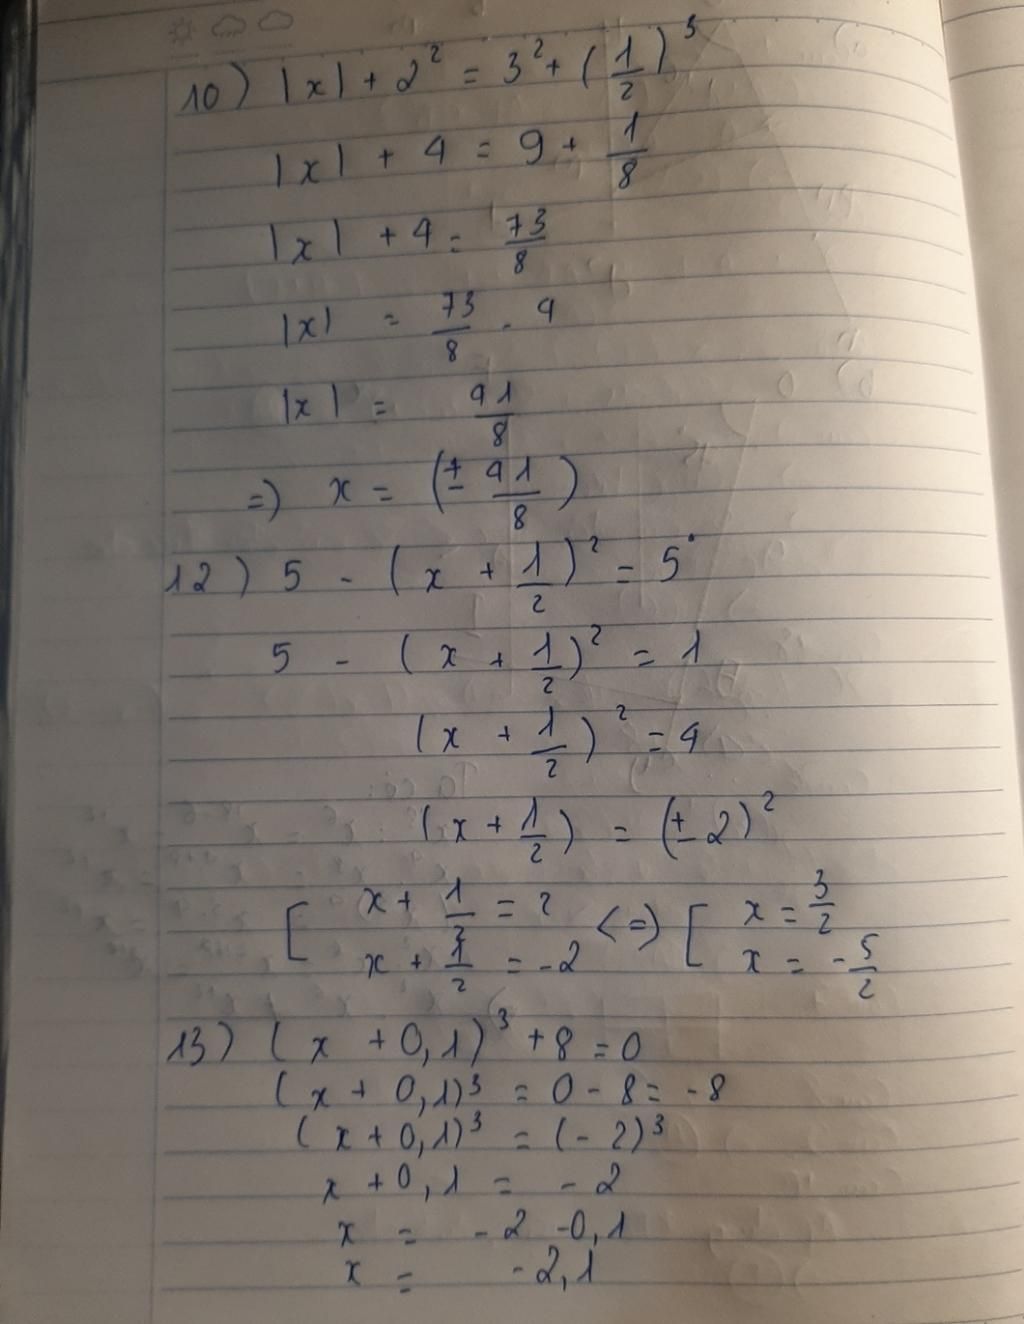 10) |x| + 2² = 3² + (1/2)³
|x| + 4 = 9 + 1/8
|x| + 4 = 73/8
|x| = 73/8 - 4
|x| = 41/8
=) x = (± 41/8)
12) 5 - (x + 1/2)² = 5°
5 - (x + 1/2)² = 1
(x + 1/2)² = 4
(x + 1/2) = (± 2)²
[ x + 1/2 = 2 <=> [ x = 3/2
x + 1/2 = -2 x = -5/2
13) (x + 0,1)³ + 8 = 0
(x + 0,1)³ = 0 - 8 = -8
(x + 0,1)³ = (- 2)³
x + 0,1 = - 2
x = - 2 - 0,1
x = - 2,1